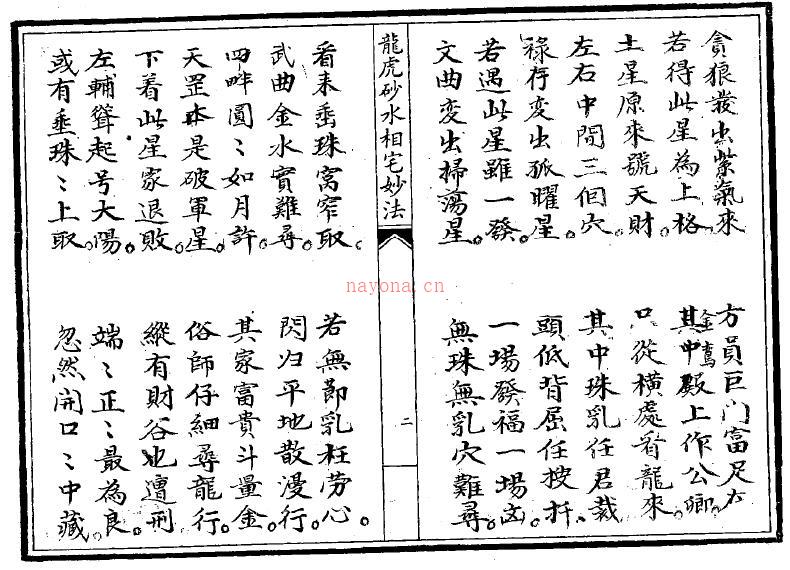 貪狼發出紫氣來 方員巨門富足才
若得此星為上格。 其中殿上作公卿。
金鸞
土星原來號天財 只從橫處看龍來。
左右中間三個穴 其中珠乳任君裁
祿存変出孤曜星。 頭低背屈任披扦。
若遇此星雖一發。 一場發福一場凶。
文曲変出掃蕩星。 無珠無乳穴難尋
龍虎砂水相宅妙法
二
看來垂珠窩窄取。 若無節乳枉劳心。
武曲金水實難尋。 閃归平地散漫行。
四畔圓〻如月許。 其家富貴斗量金。
天罡本是破軍星。 俗師仔細尋龍行。
下着此星家退敗。 縱有財谷也遭刑
左輔聳起号大陽。 端〻正〻最為良。
或有垂珠〻上取。 忽然開口〻中藏。
nayona.cn